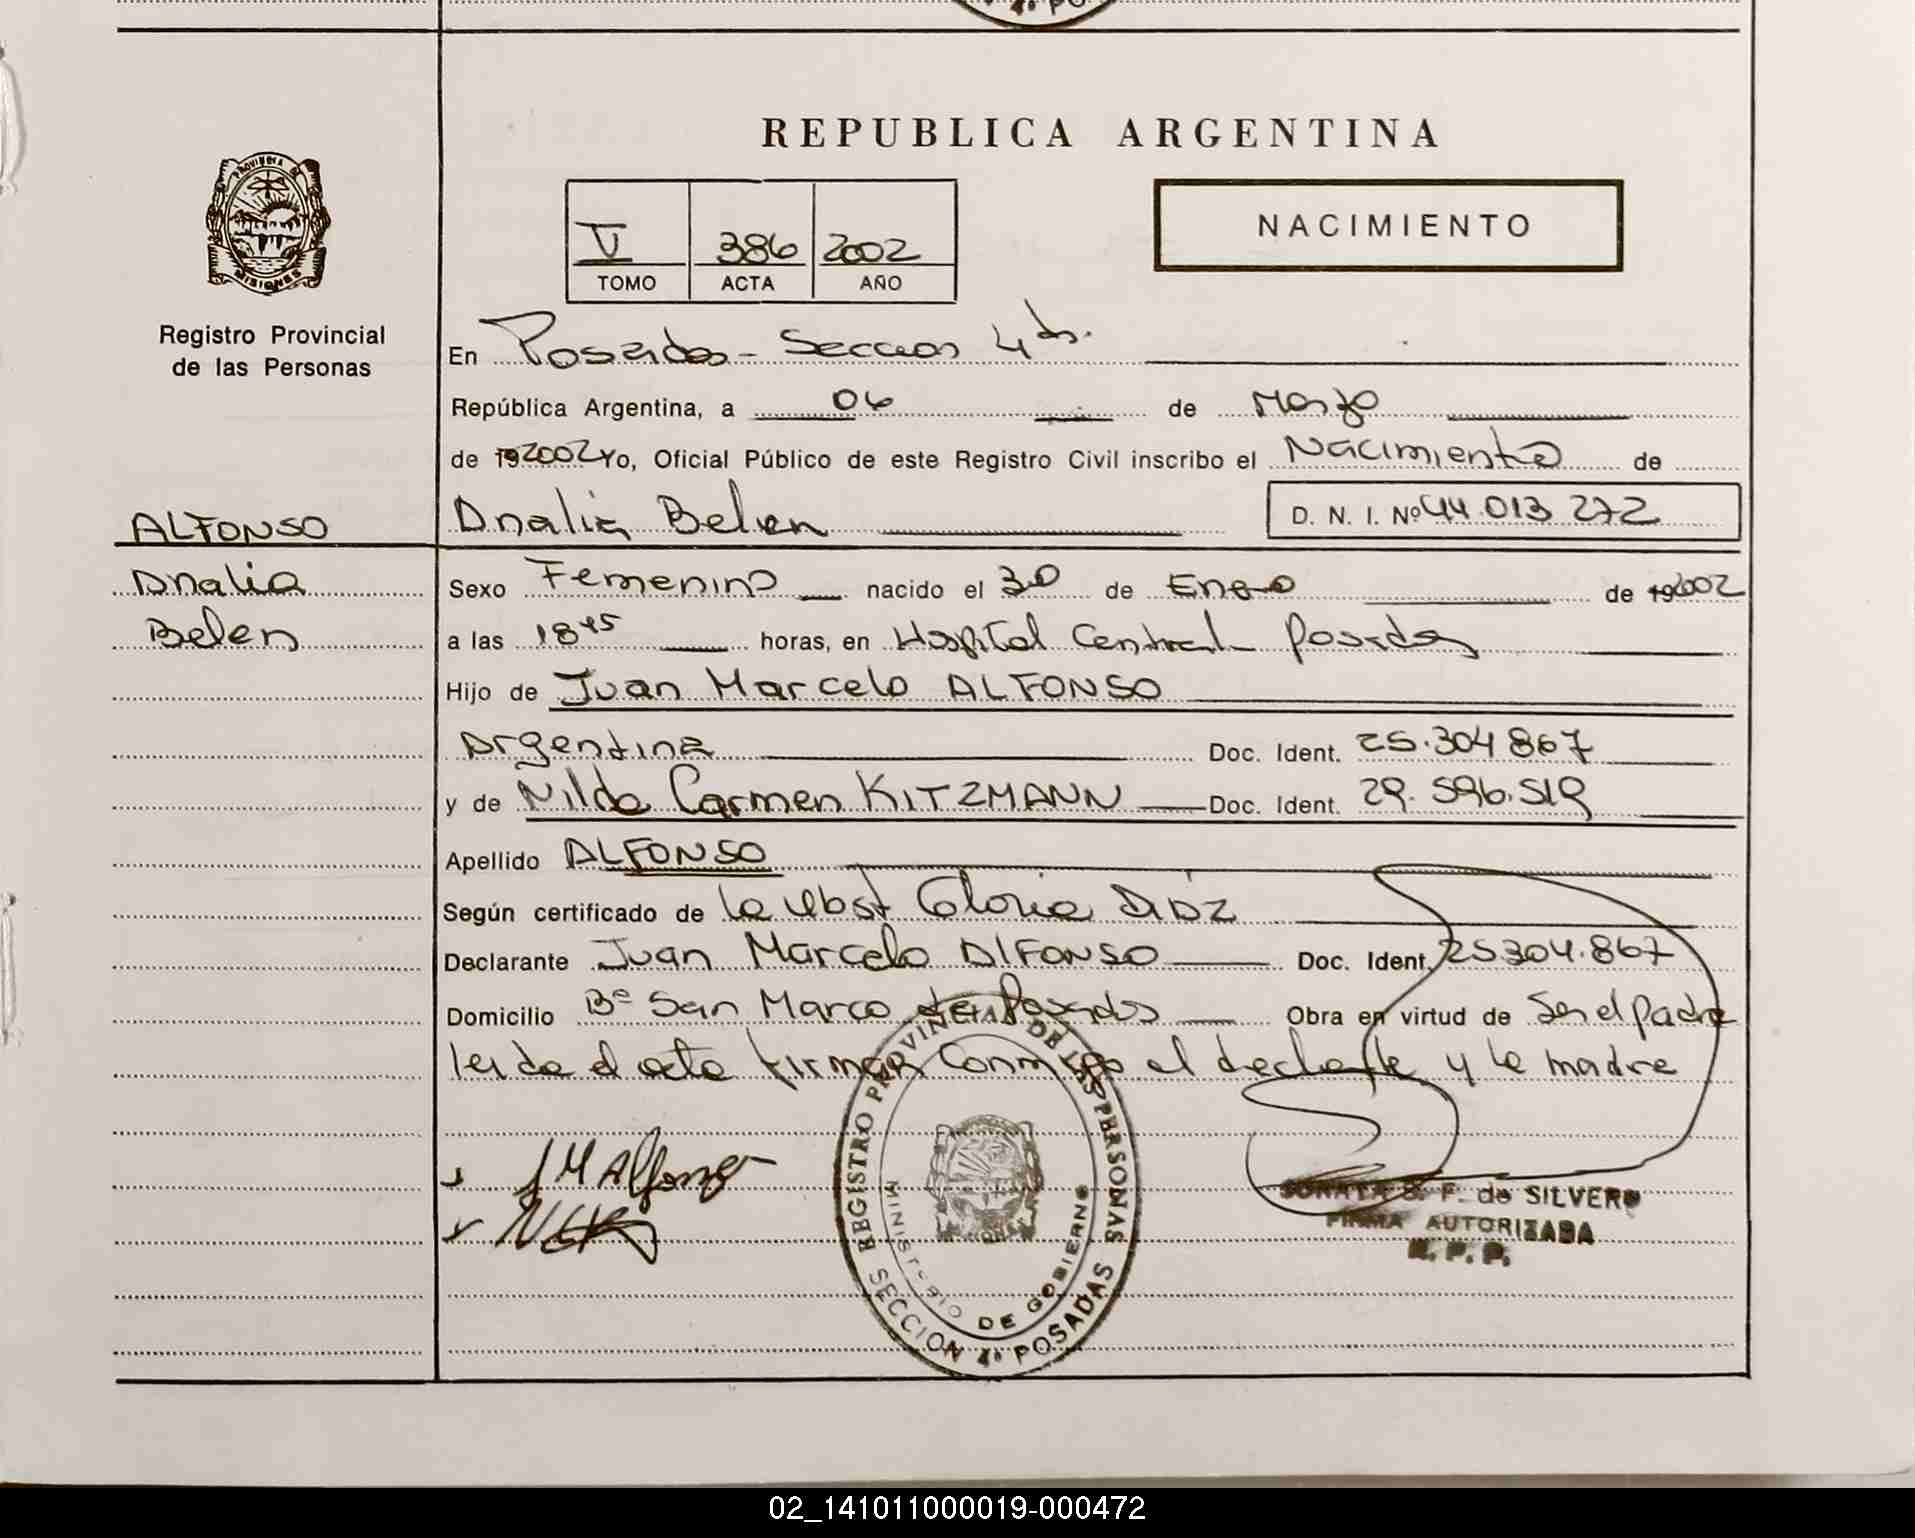 4ª PO
REPUBLICA ARGENTINA
PROVINCIA DE
MISIONES
V 386 2002
TOMO ACTA AÑO
NACIMIENTO
Registro Provincial
de las Personas
En Posadas - Seccion 4ta.
República Argentina, a 06 de Marzo
de 192002 Yo, Oficial Público de este Registro Civil inscribo el Nacimiento de
ALFONSO
Analia Belen D. N. I. Nº 44.013.272
Analia
Belen
Sexo Femenino nacido el 30 de Enero de 192002
a las 18:45 horas, en Hospital Central Posadas
Hijo de Juan Marcelo ALFONSO
Argentina Doc. Ident. 25.304.867
y de Nilda Carmen KITZMANN Doc. Ident. 29.596.519
Apellido ALFONSO
Según certificado de la Obst Gloria DIAZ
Declarante Juan Marcelo ALFONSO Doc. Ident. 25.304.867
Domicilio Bº San Marco de Posadas Obra en virtud de Ser el padre
leida el acta firman conmigo el declarante y la madre
J M Alfonso
REGISTRO PROVINCIAL DE LAS PERSONAS
MINISTERIO DE GOBIERNO
SECCION 4ª POSADAS
F. de SILVERO
FIRMA AUTORIZADA
R. P. P.
02_141011000019-000472